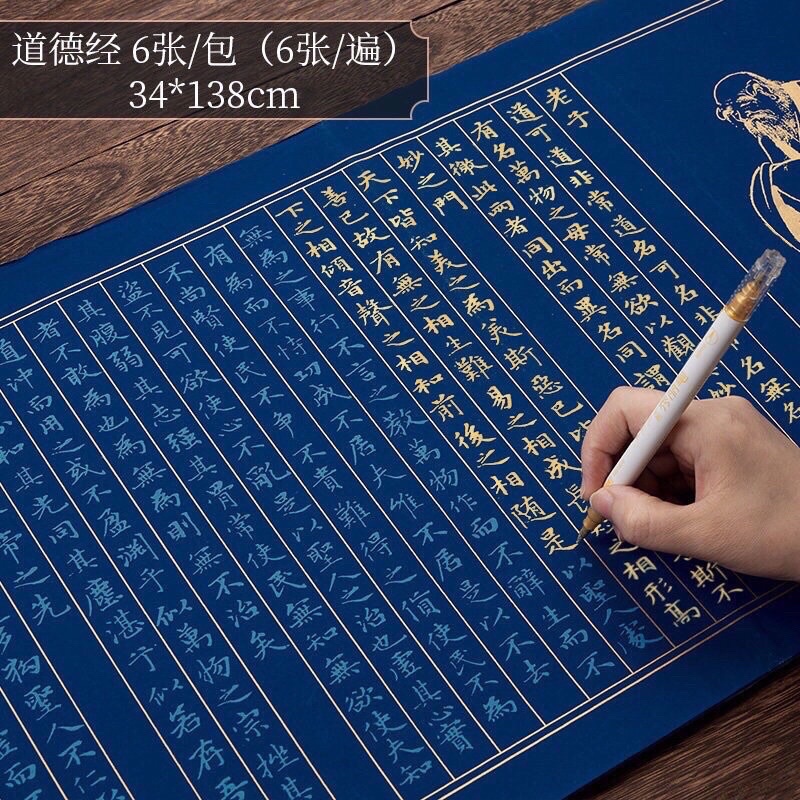 道德经 6张/包（6张/遍）
34*138cm
老子
道可道非常道名可名非名無名
有名萬物之母常無欲以觀妙
其徼此兩者同出而異名同謂
妙之門
天下皆知美之為美斯惡已皆斯不
善已故有無之相生難易之相成之相形高
下之相傾音聲之相和前後之相隨是以聖人處
無為之事行不言之教萬物作而不辭生而不
有為而不恃功成不居夫惟不居是以不去
不尚賢使民不爭不貴難得之貨使民不為
盜不見可欲使心不亂是以聖人之治也虛其心實
其腹弱其志強其骨常使民無知無欲使夫知
者不敢為也為無為則無不治矣
道沖而用之或不盈淵乎似萬物之宗挫其
和其光同其塵湛乎似若存吾
帝之先
聖人不仁